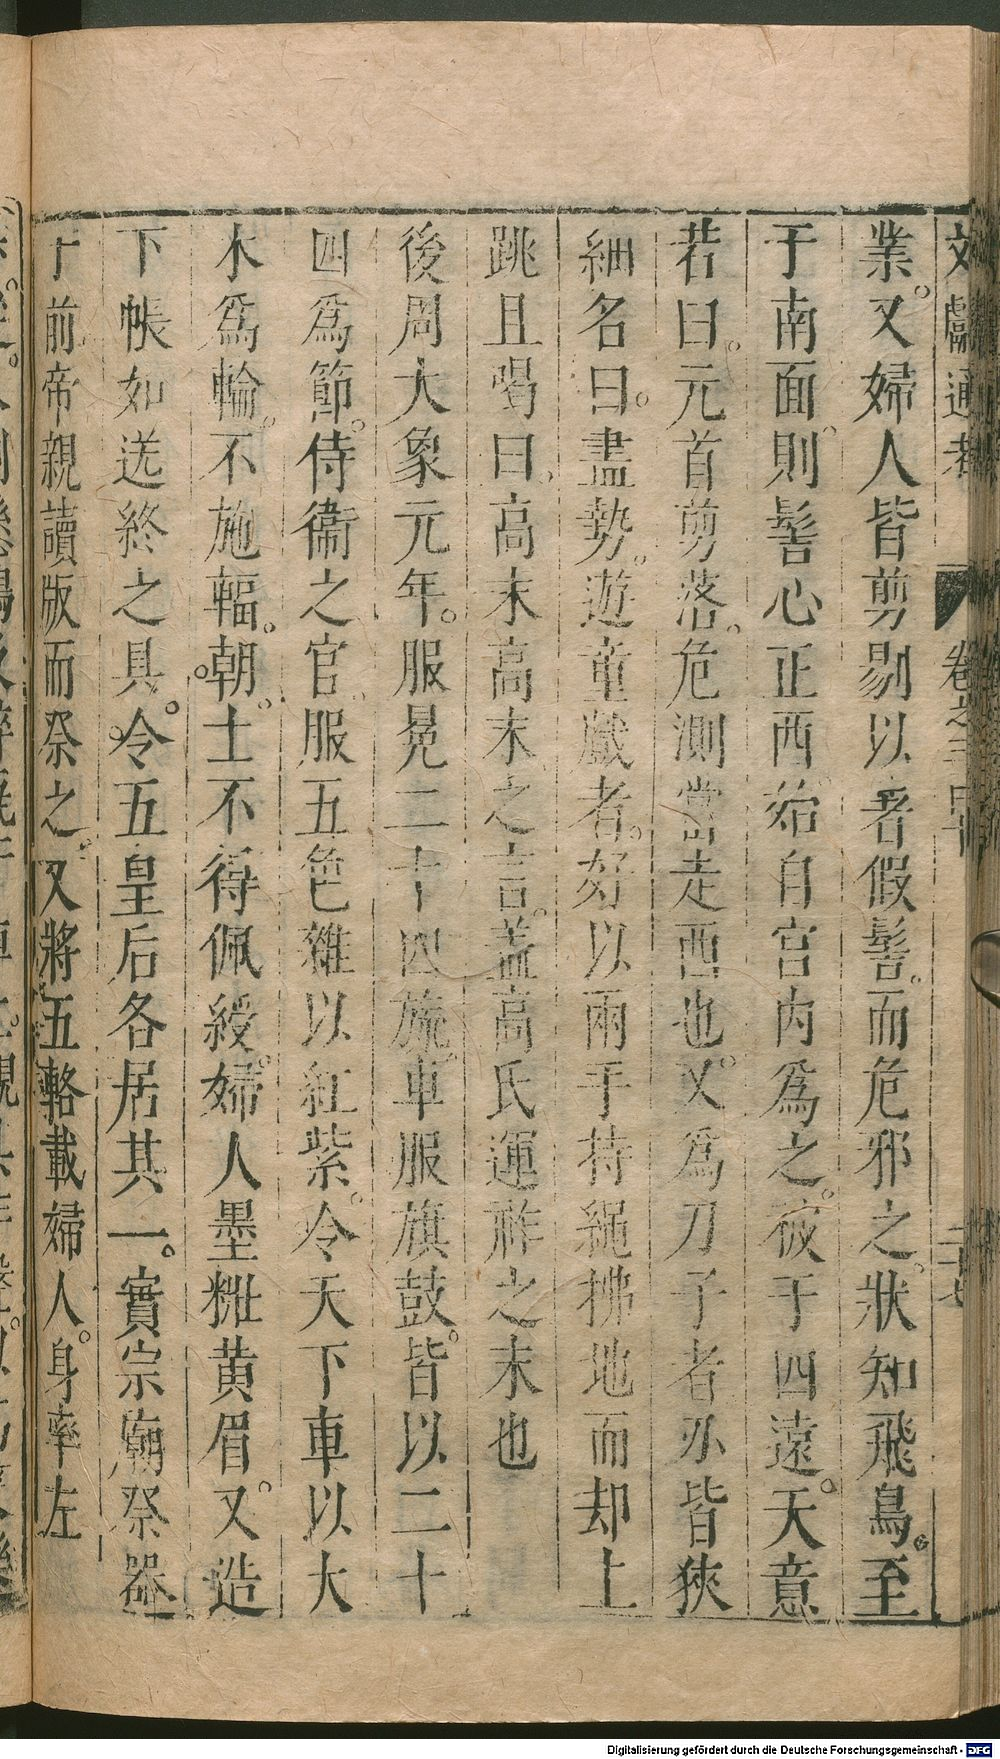 文獻通考 卷之三百 二十七
業又婦人皆剪剔以著假髻而危邪之狀知飛鳥至
于南面則髻心正西始自宮內爲之被于四遠天意
若曰元首剪落危測當走西也又爲刀子者刃皆狹
細名曰盡勢遊童戲者好以兩手持繩拂地而却上
跳且唱曰高末高末之言盖高氏運祚之末也
後周大象元年服冕二十四旒車服旗鼓皆以二十
四爲節侍衞之官服五色雜以紅紫令天下車以大
木爲輪不施輻朝士不得佩綬婦人墨粧黄眉又造
下帳如送終之具令五皇后各居其一實宗廟祭器
于前帝親讀版而祭之又將五輅載婦人身率左
Digitalisierung gefördert durch die Deutsche Forschungsgemeinschaft - DFG